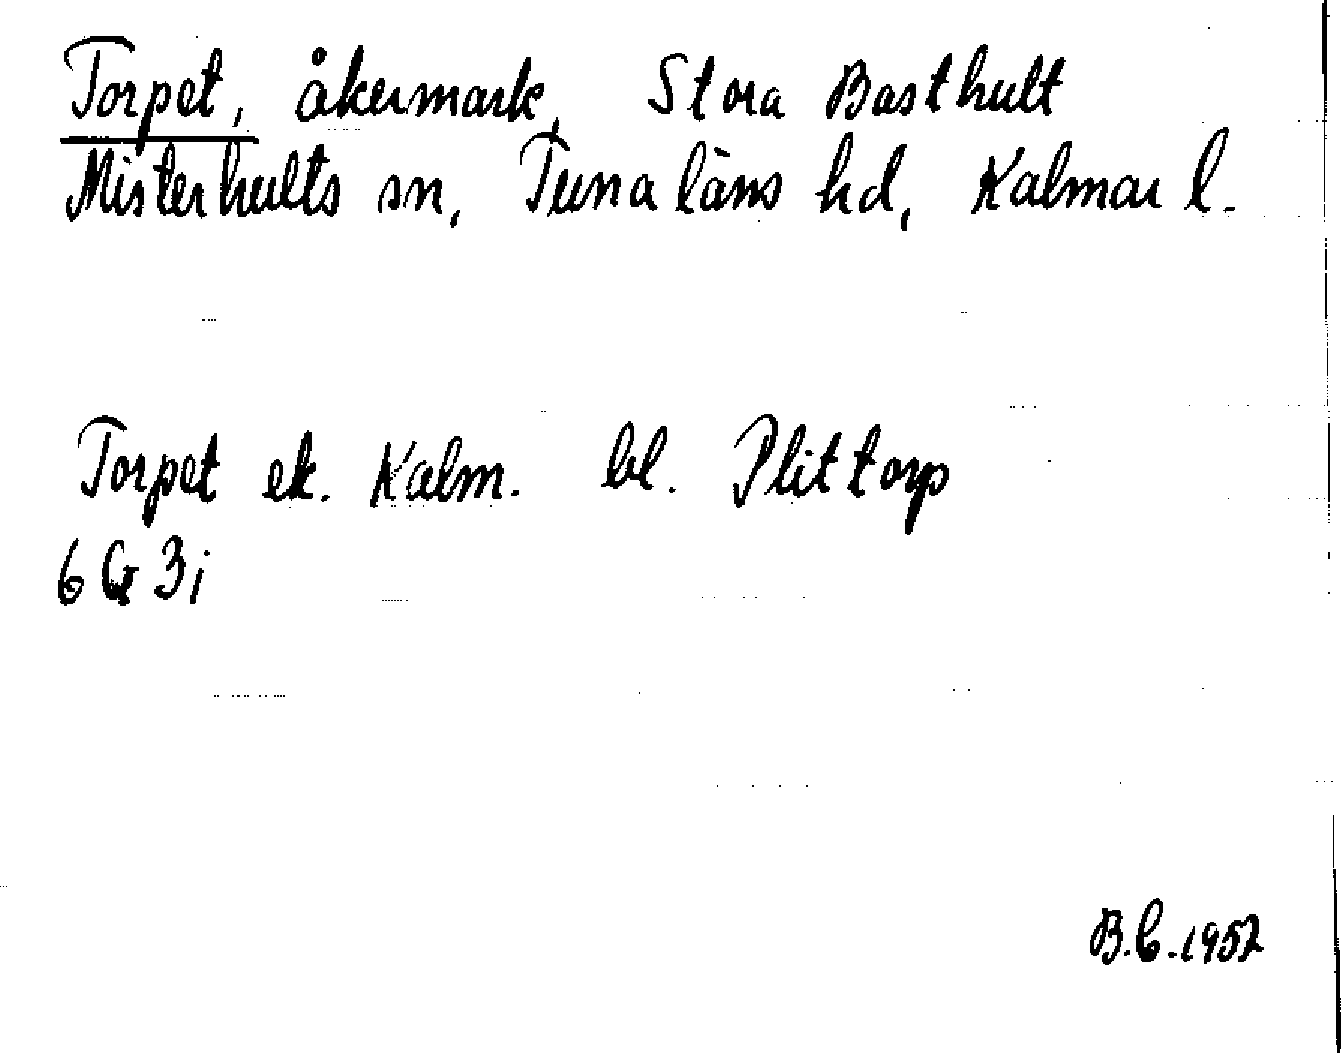 Torpet, åkermark, Stora Basthult
Misterhults sn, Tuna läns hd, Kalmar l.
Torpet ek. Kalm. bl. Plittorp
6G 3i
B.C. 1957